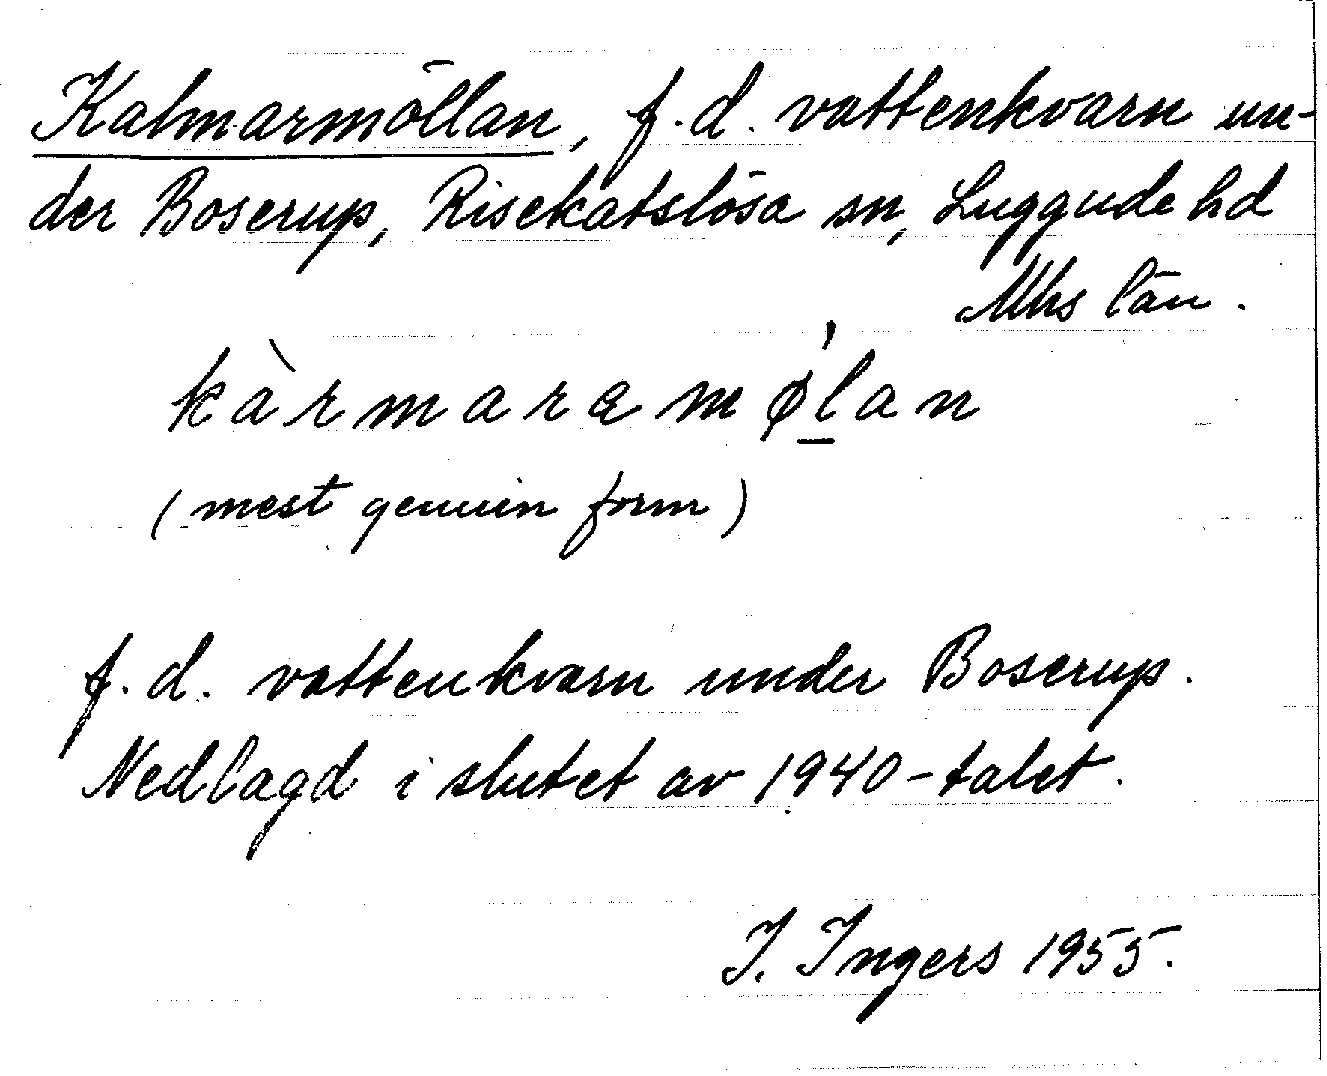 Kalmarmöllan, f.d. vattenkvarn un-
der Boserup, Risekatslösa sn, Luggude hd
Mhs län.
kàrmaramø̍lan
(mest genuin form)
f.d. vattenkvarn under Boserup.
Nedlagd i slutet av 1940-talet.
I. Ingers 1955.